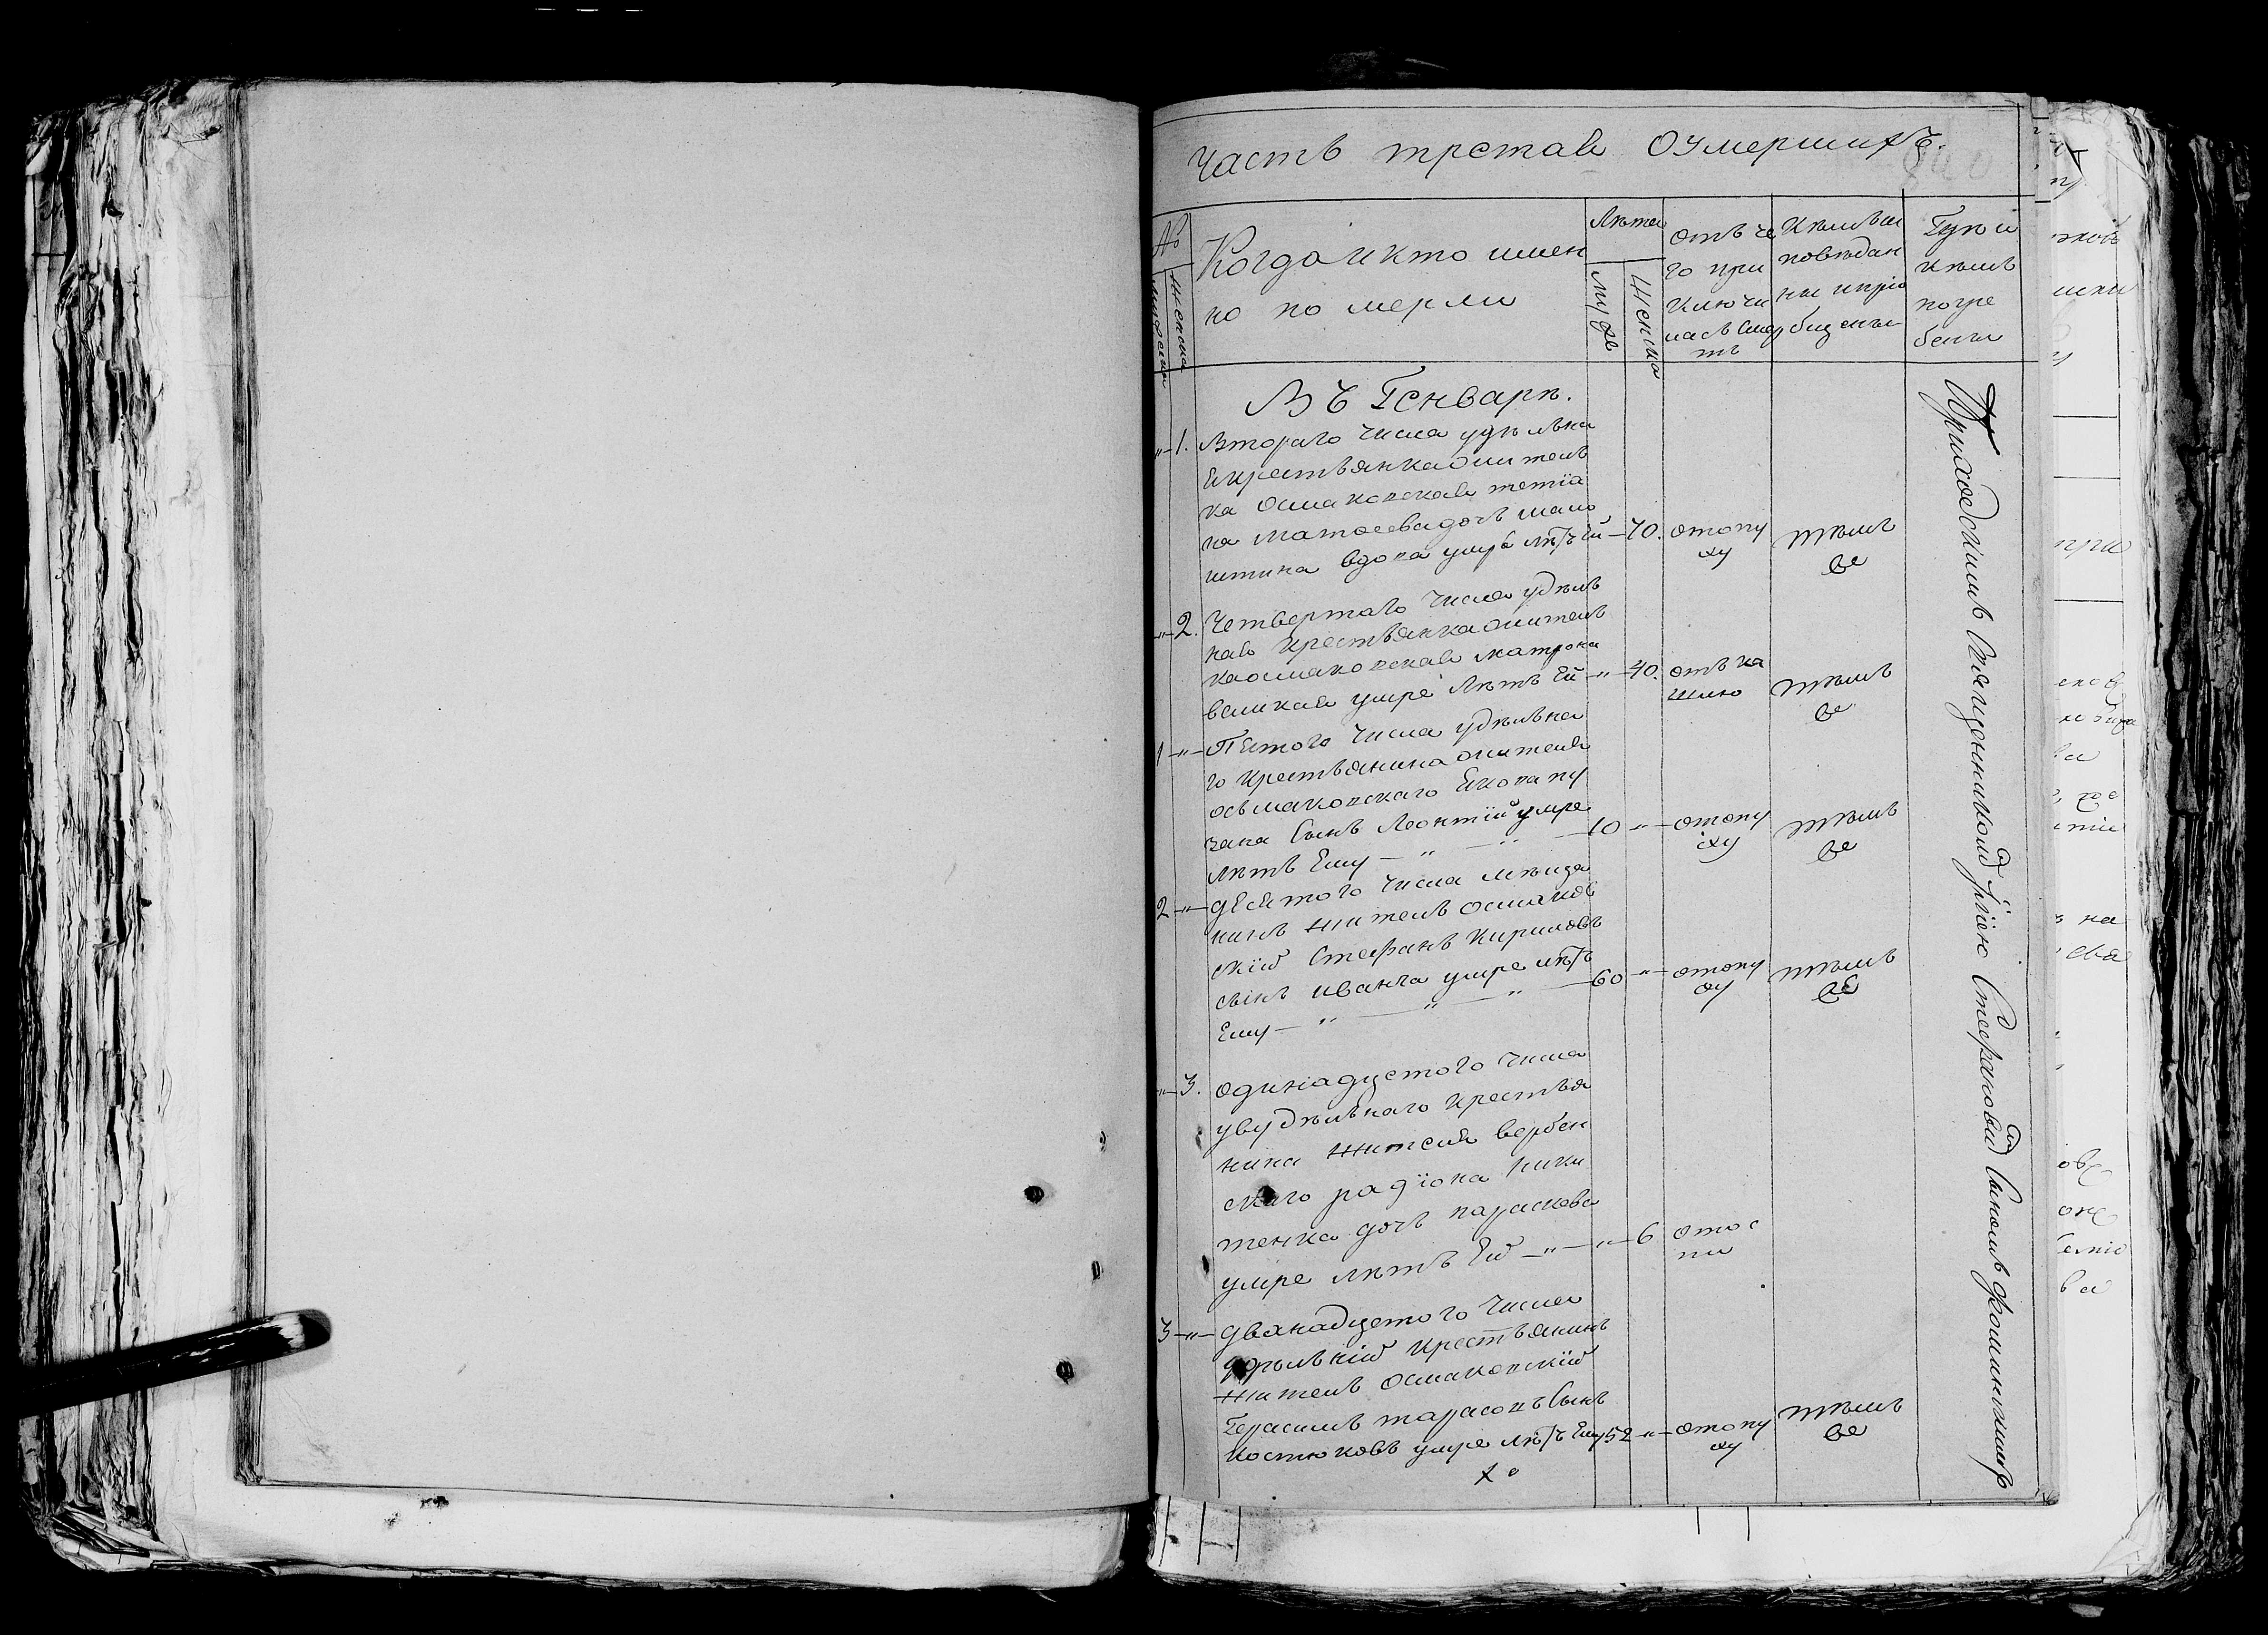 Часть третая Оумершихъ.
№
мужеска
женска
Когда и кто имен
но по мерли
Лѣта
муже
женска
отъ че
го при
ключи
лась смер
ть
Кѣмъ ис
повѣдан
ны и прiо
бщены
Где и
кемъ
погре
бены
Въ Генваре.
"-1. Втораго числа удѣльна
я крестьянка жителъ
ка осмаковская тетiа
на матөеева дочь мало
штина вдова умре лѣтъ ей -70. отопу
ху
тѣмъ
же
"-2. Четвертаго числа удѣль
ная крестьянка жителъ
ка осмаковская матрона
великая умре лѣтъ ей -"-40. отъ ка
шлю
тѣмъ
же
1-"- Пятого числа удѣльна
го крестьянина жителя
осьмаковского Якова пу
зана сынъ Леонтiй умре
лѣтъ Ему - " - " - 10 "- отопу
ху
тѣмъ
же
2-"- десятого числа мещa
нинъ житель осмаков
скiй Стефанъ Кириловъ
сынъ иванча умре лѣтъ
Ему - " - " - " - 60 "- отопу
ху
тѣмъ
же
"-3. одинадцетого числа
у удѣльнаго крестья
нина жителя вербен
ского радiона ники
тенка дочь параскева
умре лѣтъ Ей -"-"-6 отос
пи
3-"- дванадцетого числа
удѣльнiй крестьянинъ
житель осмаковскiй
Герасимъ тарасовъ сынъ
костюковъ умре лѣтъ Ему 52 "- отопу
ху
тѣмъ
же
Приходскимъ священникомъ Iлiею Стефановимъ сыномъ